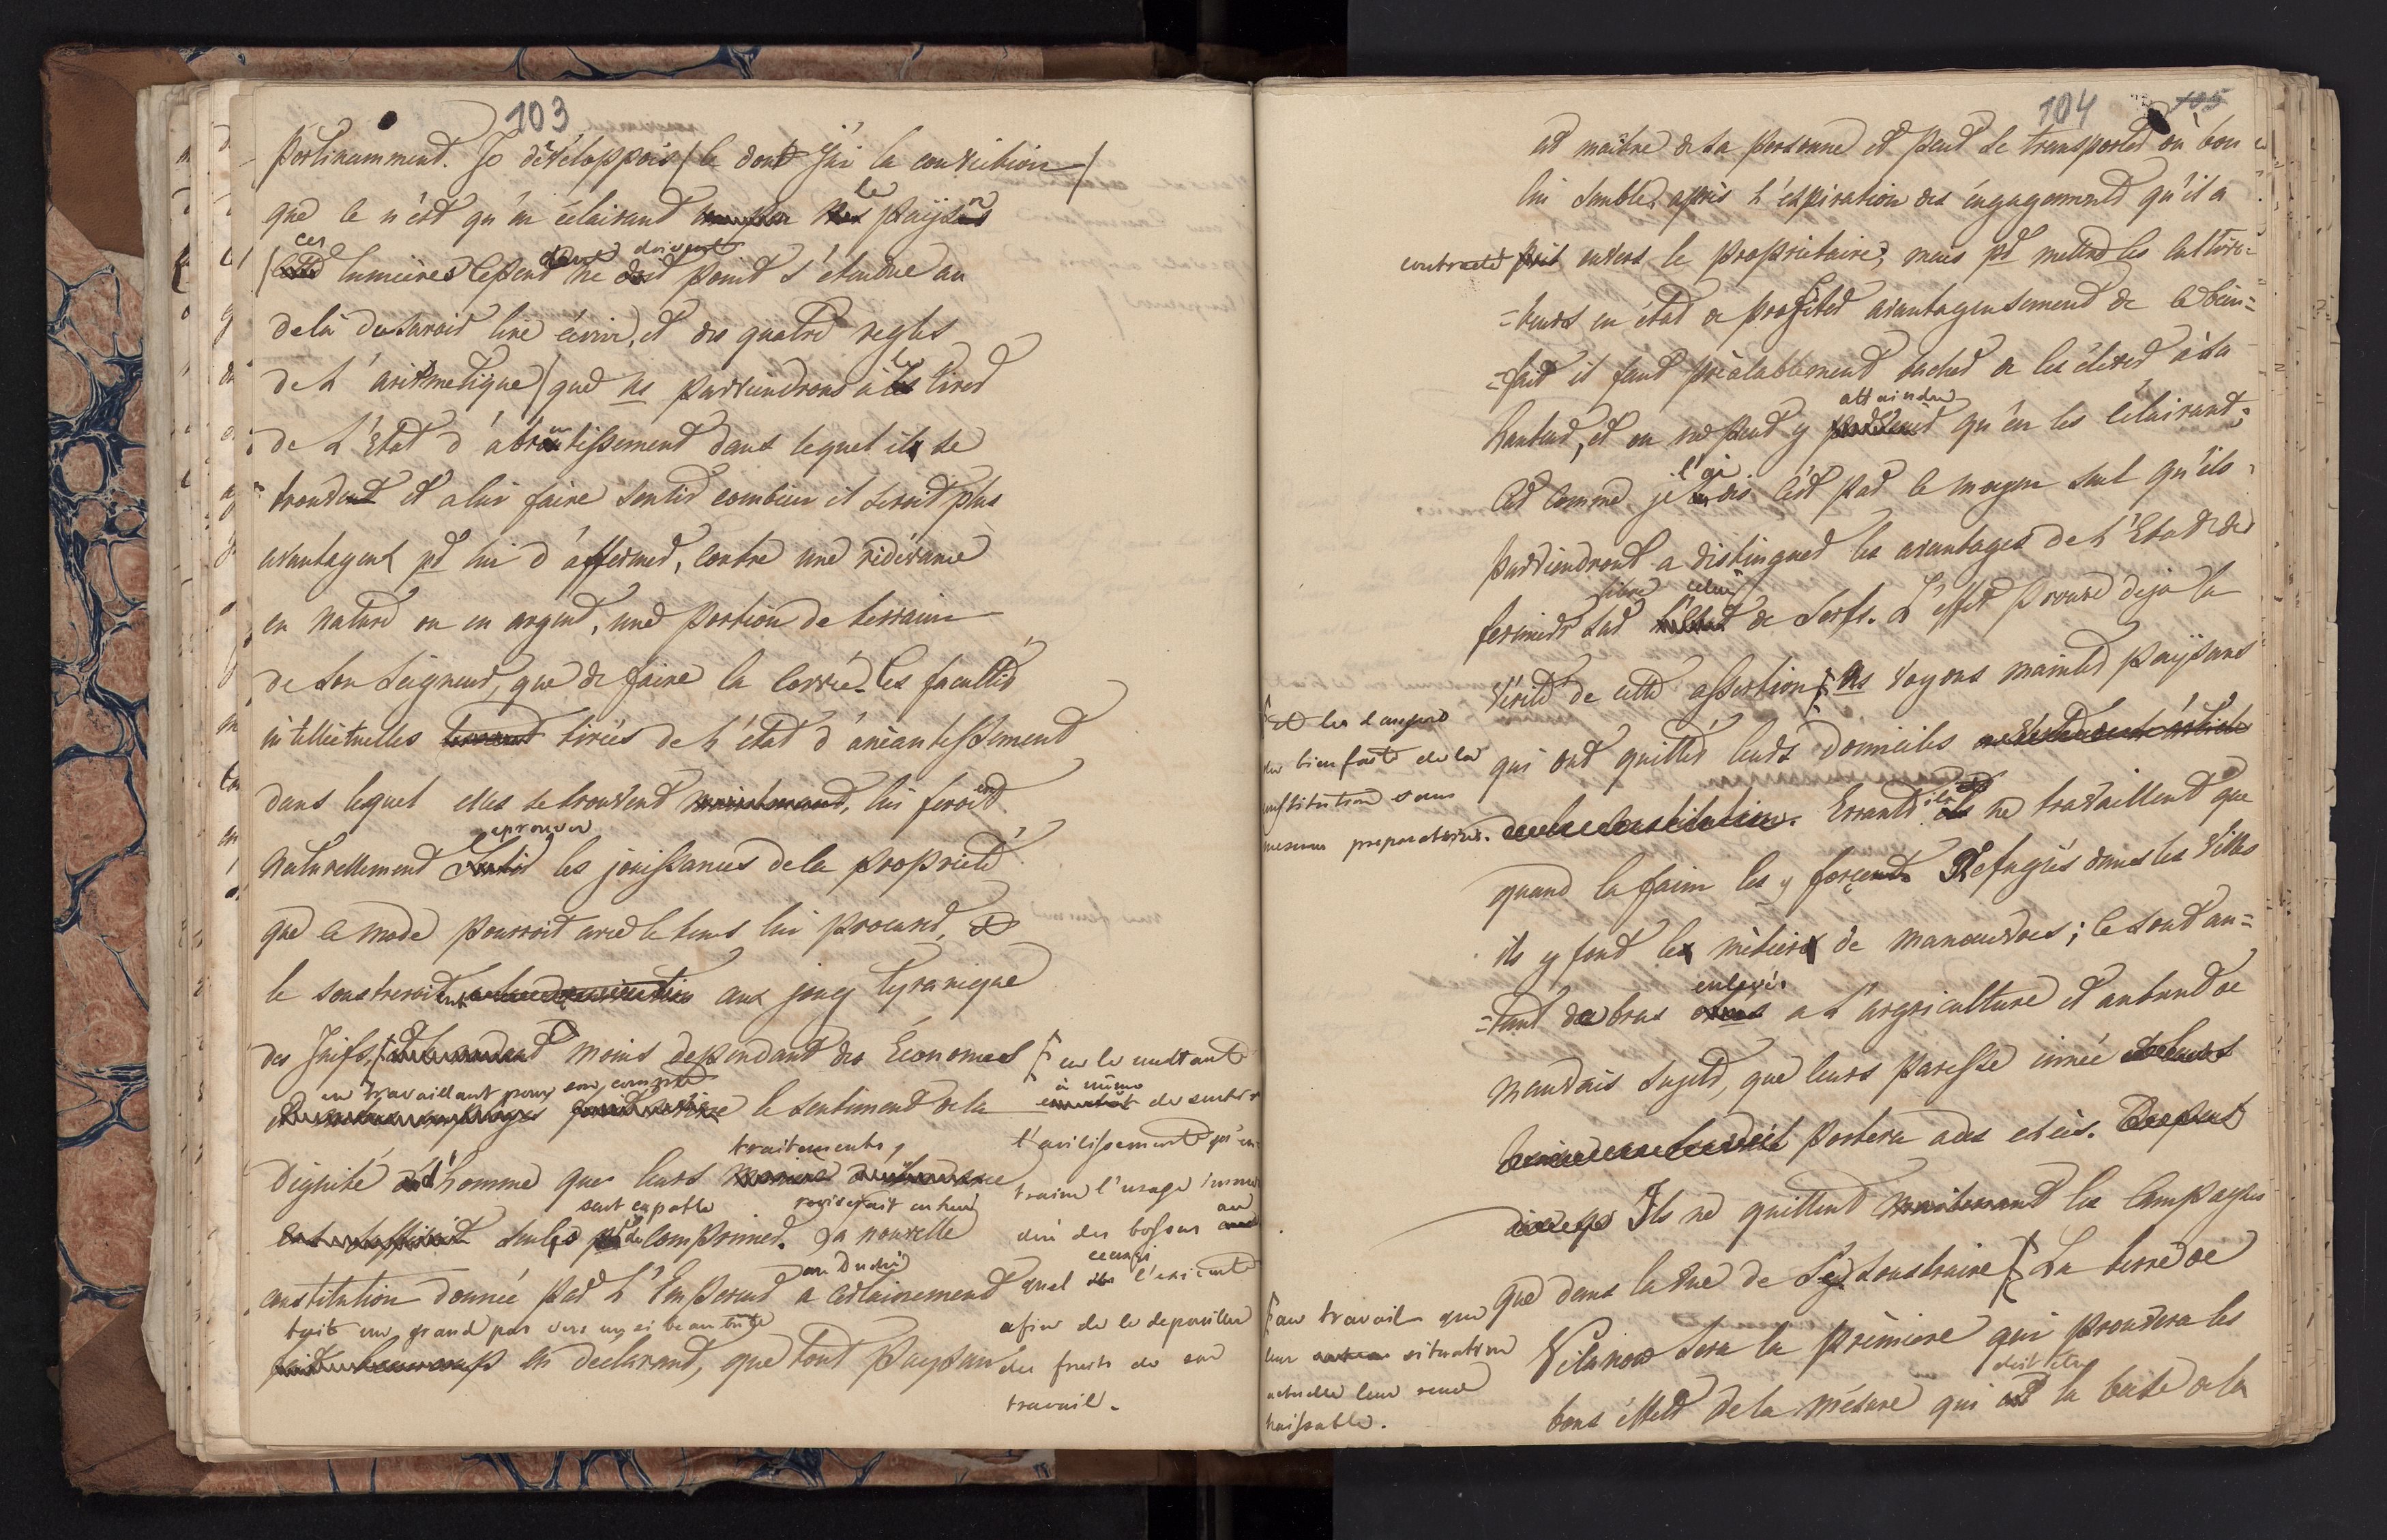 103
pertinamment. Je dévéloppois (ce dont j'ai la conviction)
que ce n'est qu'en éclairant le païsan
(ces lumières cepend ne doivent point s'étendre au
delà du savoir lire écrire, et des quatre regles
de l'aritmetique) que ns parviendrons à le tirer
de l'état d'abrutissement dans lequel il se
trouve et a lui faire sentir combien il seroit plus
avantageux pr lui d'affermer, contre une redévance
en nature ou en argent, une portion de terrain
de son Seigneur, que de faire la corvée. Les facultés
intellectuelles tirées de l'état d'anéantissement
dans lequel elles se trouvent, lui feroient
naturellement eprouver les jouissances de la proprieté
que ce mode pourroit avec le tems lui procurer, et
le soustrairoient aux joug tyranique
des Juifs, moins dependant des Économes
en travaillant pour son compte le sentiment de la
dignité d'homme que leurs traitements,
sont capable seuls de comprimer. La nouvelle
constitution donnée par l'Empereur au Duché a certainement
fait un grand pas vers un si beau but
en declarant, que tout paysan
en le mettant
à même de sentir
l'avilissement qu'en-
traine l'usage immo-
deré des boissons au
quel ceux ci l'excitent
afin de le depouiller
des fruits de son
travail.
104 105
est maître de sa personne et peut se transporter où bon
lui semble, après l'éxpiration des éngagements qu'il a
contracté envers le propriétaire; mais pr mettre les cultiva=
=teurs en état de profiter avantageusement de ce bien=
=fait il faut préalablement tacher de les élever à sa
hauteur, et on ne peut y attaindre qu'en les éclairant;
Car comme je l'ai dis c'est par ce moyen seul qu'ils
parviendront a distinguer les avantages de l'Etat de
fermier libre sur celui de Serfs. L'effet prouve deja la
vérité de cette assertion ns voyons maints païsans
qui ont quittés leurs domiciles
Errants ils ne travaillent que
quand la faim les y forçent. Refugiés dans les villes
ils y font le métier de manoeuvres; ce sont au=
=tant de bras enlevés a l'agriculture et autant de
mauvais sujets, que leurs paresse innée
portera a des excès.
Ils ne quittent les Campagnes
que dans la vue de se soustraire La terre de
Vilanow sera la prémiere qui prouvera les
bons éffets de la mésure qui doit être la base de la
et les dangers
du bienfait de la
constitution sans
mesures preparatoires.
au travail que
leur situation
actuelle leur rend
haissable.